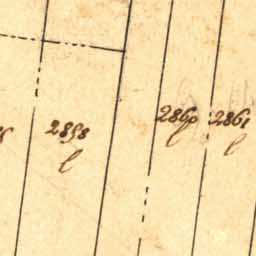 2858
l
2860
l
2861
l